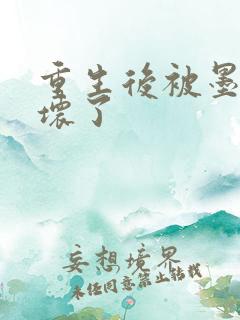 重生後被墨
壞了
妄想境界
未经同意禁止转载